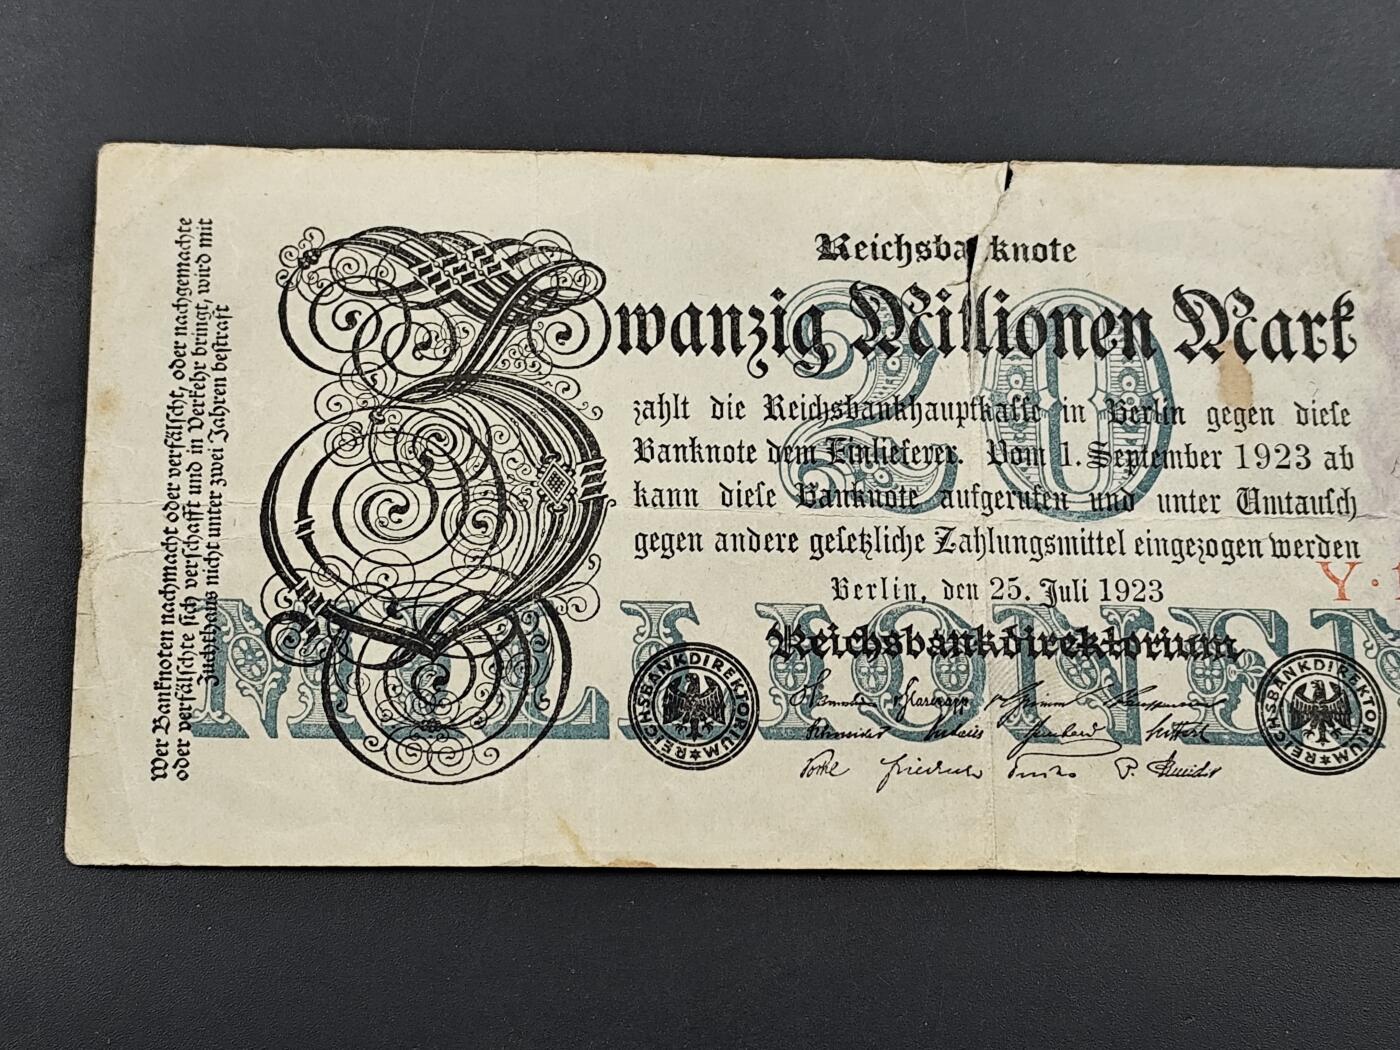 Wer Banknoten nachmacht oder verfälscht, oder nachgemachte
oder verfälschte sich verschafft und in Verkehr bringt, wird mit
Zuchthaus nicht unter zwei Jahren bestraft
Reichsbanknote
Zwanzig Millionen Mark
20
zahlt die Reichsbankhauptkasse in Berlin gegen diese
Banknote dem Einlieferer. Vom 1. September 1923 ab
kann diese Banknote aufgerufen und unter Umtausch
gegen andere gesetzliche Zahlungsmittel eingezogen werden
Y·
Berlin, den 25. Juli 1923
Reichsbankdirektorium
MILLIONEN
REICHSBANKDIREKTORIUM
REICHSBANKDIREKTORIUM